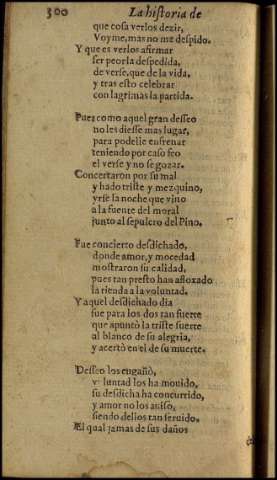 300 La historia de
que cosa verlos dezir,
Voyme, mas no me despido.
Y que es verlos afirmar
ser peor la despedida,
de verse, que de la vida,
y tras esto celebrar
con lagrimas la partida.
Pues como aquel gran desseo
no les diesse mas lugar,
para podelle enfrenar
teniendo por caso feo
el verse y no se gozar.
Concertaron por su mal
y hado triste y mezquino,
yrse la noche que vino
a la fuente del moral
junto al sepulcro del Pino.
Fue concierto desdichado,
donde amor, y mocedad
mostraron su calidad,
pues tan presto han afloxado
la rienda a la voluntad.
Y aquel desdichado dia
fue para los dos tan fuerte
que apuntò la triste suerte
al blanco de su alegria,
y acertò en el de su muerte.
Desseo los engañò,
voluntad los ha mouido,
su desdicha ha concurrido,
y amor no los auisò,
siendo dellos tan seruido.
El qual jamas de sus daños